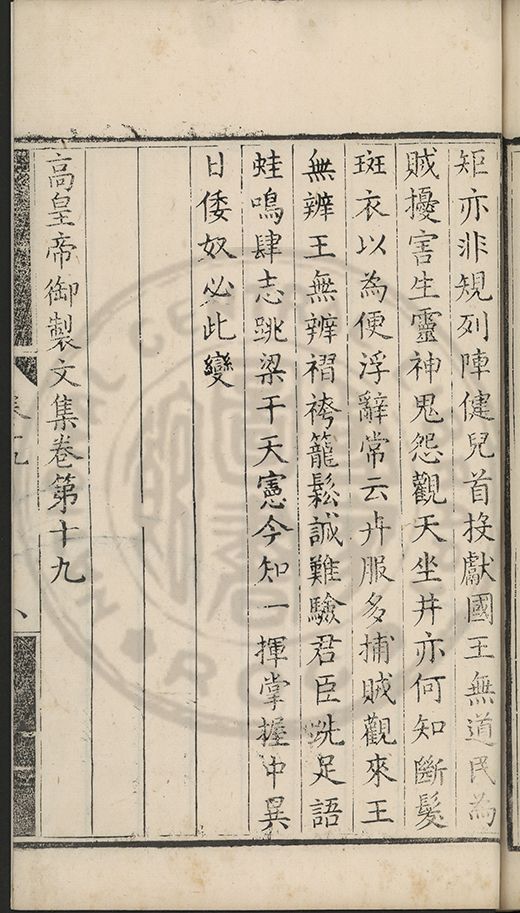 矩亦非規列陣健兒首投獻國王無道民為
賊擾害生靈神鬼怨觀天坐井亦何知斷髮
斑衣以為便浮辭常云卉服多捕賊觀來王
無辨王無辨褶袴籠鬆誠難驗君臣洗足語
蛙鳴肆志跳梁干天憲今知一揮掌握中異
日倭奴必此變
高皇帝御製文集卷第十九